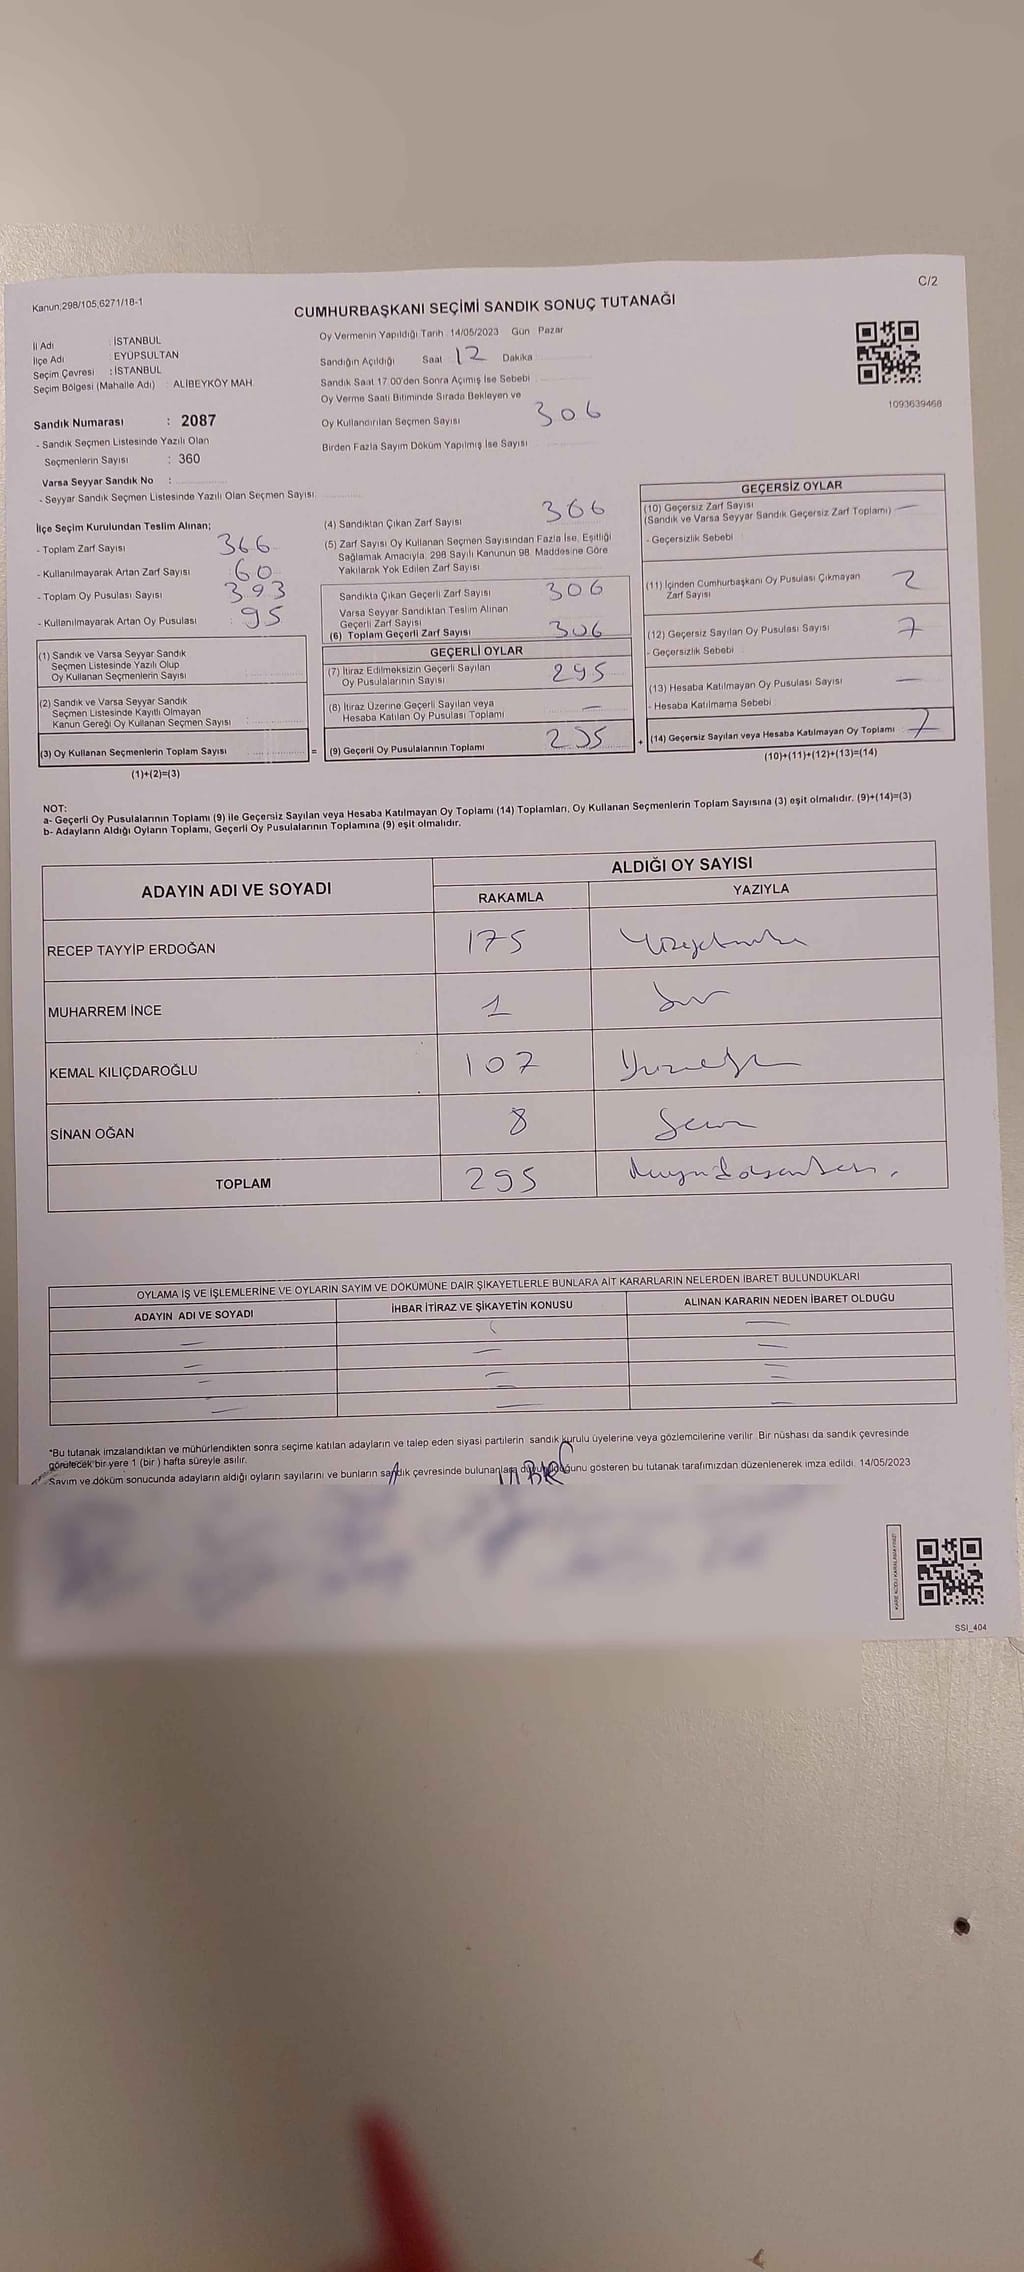 C/2
Kanun:298/105,6271/18-1
CUMHURBAŞKANI SEÇİMİ SANDIK SONUÇ TUTANAĞI
İl Adı : İSTANBUL
İlçe Adı : EYÜPSULTAN
Seçim Çevresi : İSTANBUL
Seçim Bölgesi (Mahalle Adı) : ALİBEYKÖY MAH.
Oy Vermenin Yapıldığı Tarih 14/05/2023 Gün Pazar
Sandığın Açıldığı Saat 12 Dakika
Sandık Saat 17:00'den Sonra Açımış İse Sebebi
Oy Verme Saati Bitiminde Sırada Bekleyen ve
Oy Kullandırılan Seçmen Sayısı 306
Birden Fazla Sayım Döküm Yapılmış İse Sayısı
1093639468
Sandık Numarası : 2087
- Sandık Seçmen Listesinde Yazılı Olan
Seçmenlerin Sayısı : 360
Varsa Seyyar Sandık No :
- Seyyar Sandık Seçmen Listesinde Yazılı Olan Seçmen Sayısı
İlçe Seçim Kurulundan Teslim Alınan;
- Toplam Zarf Sayısı 366
- Kullanılmayarak Artan Zarf Sayısı 60
- Toplam Oy Pusulası Sayısı 393
- Kullanılmayarak Artan Oy Pusulası : 95
(1) Sandık ve Varsa Seyyar Sandık
Seçmen Listesinde Yazılı Olup
Oy Kullanan Seçmenlerin Sayısı
(2) Sandık ve Varsa Seyyar Sandık
Seçmen Listesinde Kayıtlı Olmayan
Kanun Gereği Oy Kullanan Seçmen Sayısı :
(3) Oy Kullanan Seçmenlerin Toplam Sayısı
=
(1)+(2)=(3)
(4) Sandıktan Çıkan Zarf Sayısı 306
(5) Zarf Sayısı Oy Kullanan Seçmen Sayısından Fazla İse, Eşitliği
Sağlamak Amacıyla, 298 Sayılı Kanunun 98. Maddesine Göre
Yakılarak Yok Edilen Zarf Sayısı
Sandıkta Çıkan Geçerli Zarf Sayısı 306
Varsa Seyyar Sandıktan Teslim Alınan
Geçerli Zarf Sayısı
(6) Toplam Geçerli Zarf Sayısı 306
GEÇERLİ OYLAR
(7) İtiraz Edilmeksizin Geçerli Sayılan
Oy Pusulalarının Sayısı 295
(8) İtiraz Üzerine Geçerli Sayılan veya
Hesaba Katılan Oy Pusulası Toplamı —
(9) Geçerli Oy Pusulalarının Toplamı 295
+
GEÇERSİZ OYLAR
(10) Geçersiz Zarf Sayısı —
(Sandık ve Varsa Seyyar Sandık Geçersiz Zarf Toplamı)
- Geçersizlik Sebebi
(11) İçinden Cumhurbaşkanı Oy Pusulası Çıkmayan
Zarf Sayısı 2
(12) Geçersiz Sayılan Oy Pusulası Sayısı 7
- Geçersizlik Sebebi
(13) Hesaba Katılmayan Oy Pusulası Sayısı —
- Hesaba Katılmama Sebebi
(14) Geçersiz Sayılan veya Hesaba Katılmayan Oy Toplamı 7
(10)+(11)+(12)+(13)=(14)
NOT:
a- Geçerli Oy Pusulalarının Toplamı (9) ile Geçersiz Sayılan veya Hesaba Katılmayan Oy Toplamı (14) Toplamları, Oy Kullanan Seçmenlerin Toplam Sayısına (3) eşit olmalıdır. (9)+(14)=(3)
b- Adayların Aldığı Oyların Toplamı, Geçerli Oy Pusulalarının Toplamına (9) eşit olmalıdır.
ADAYIN ADI VE SOYADI
ALDIĞI OY SAYISI
RAKAMLA YAZIYLA
RECEP TAYYİP ERDOĞAN 175
MUHARREM İNCE 1
KEMAL KILIÇDAROĞLU 107
SİNAN OĞAN 8
TOPLAM 295
OYLAMA İŞ VE İŞLEMLERİNE VE OYLARIN SAYIM VE DÖKÜMÜNE DAİR ŞİKAYETLERLE BUNLARA AİT KARARLARIN NELERDEN İBARET BULUNDUKLARI
ADAYIN ADI VE SOYADI İHBAR İTİRAZ VE ŞİKAYETİN KONUSU ALINAN KARARIN NEDEN İBARET OLDUĞU
*Bu tutanak imzalandıktan ve mühürlendikten sonra seçime katılan adayların ve talep eden siyasi partilerin sandık kurulu üyelerine veya gözlemcilerine verilir. Bir nüshası da sandık çevresinde
görülecek bir yere 1 (bir) hafta süreyle asılır.
Sayım ve döküm sonucunda adayların aldığı oyların sayılarını ve bunların sandık çevresinde bulunanlara duyurulduğunu gösteren bu tutanak tarafımızdan düzenlenerek imza edildi. 14/05/2023
SSI_404